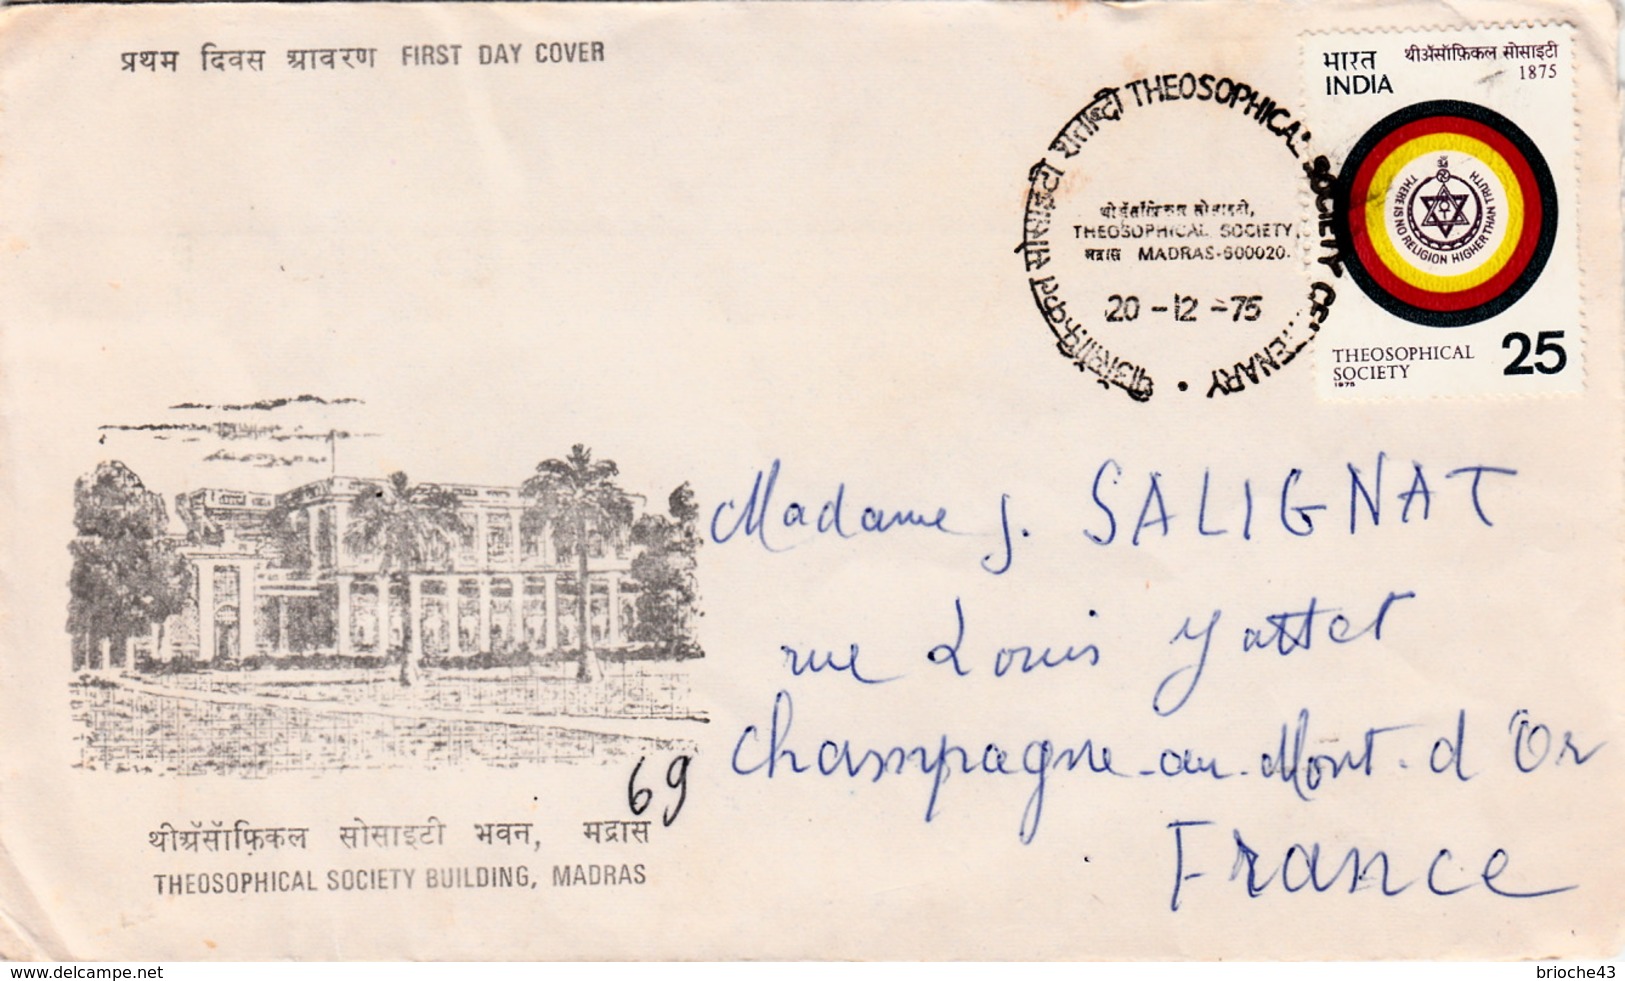 प्रथम दिवस आवरण FIRST DAY COVER
भारत थीऑसॉफ़िकल सोसाइटी
INDIA 1875
THERE IS NO RELIGION HIGHER THAN TRUTH
THEOSOPHICAL
SOCIETY 25
1975
थीऑसॉफ़िकल सोसाइटी शताब्दी THEOSOPHICAL SOCIETY CENTENARY
थीऑसॉफ़िकल सोसाइटी,
THEOSOPHICAL SOCIETY,
मद्रास MADRAS-600020.
20-12-75
Madame J. SALIGNAT
rue Louis
Champagne-au-Mont-d'Or
France
69
थीऑसॉफ़िकल सोसाइटी भवन, मद्रास
THEOSOPHICAL SOCIETY BUILDING, MADRAS
www.delcampe.net brioche43